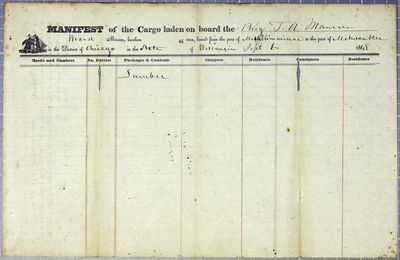 MANIFEST of the Cargo laden on board the Brig
Ward Master, burthen tons, bound from the port of to the port of Milwaukee
in the District of Chicago in the State of Wisconsin Sept 6
Marks and Numbers No. Entries Packages & Contents Shippers Residence Consignees Residence
Lumber